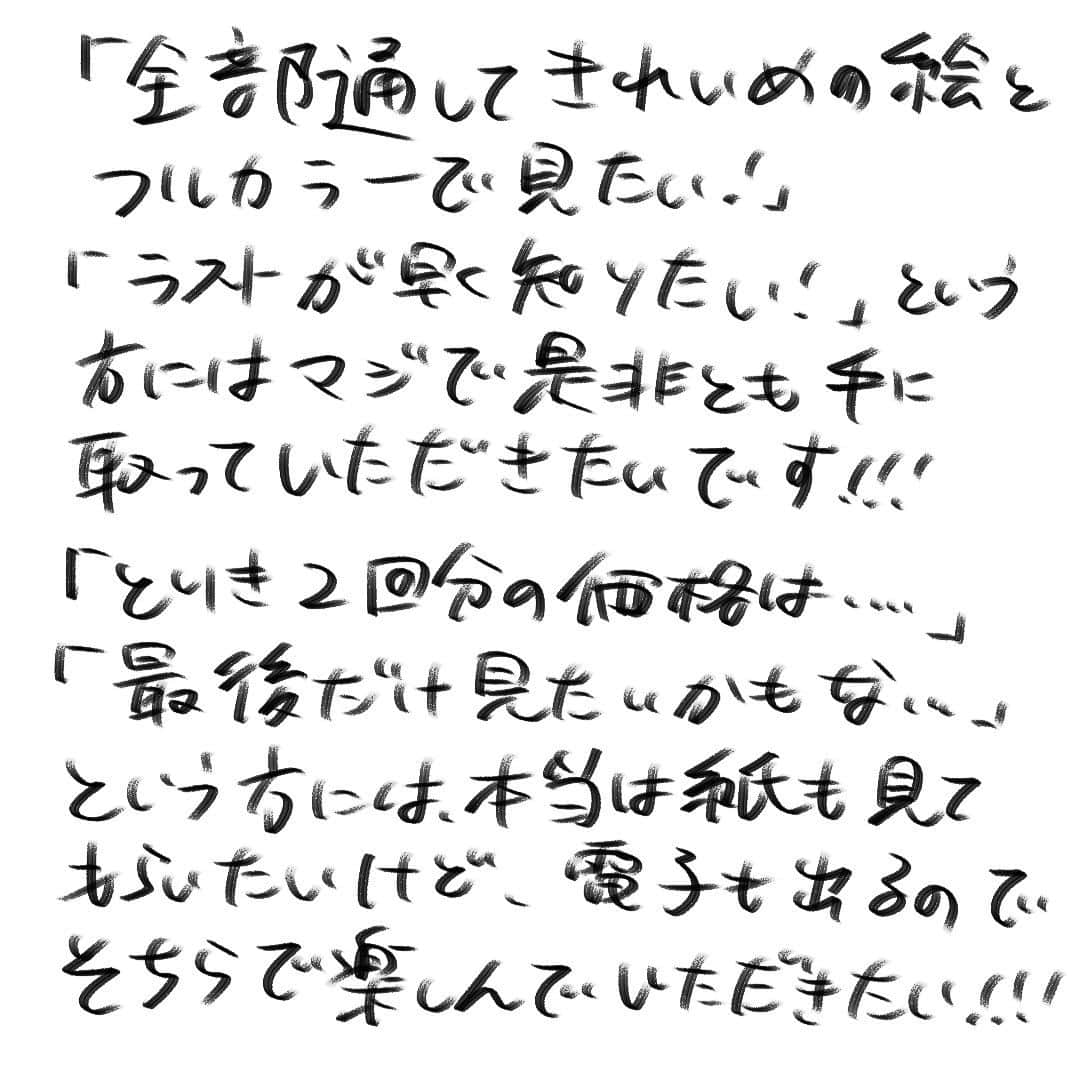 「全部通してきれいめの絵と
フルカラーで見たい!」
「ラストが早く知りたい!」という
方にはマジで是非とも手に
取っていただきたいです!!!
「とりき2回分の価格は‥‥」
「最後だけ見たいかもな‥‥」
という方には、本当は紙も見て
もらいたいけど、電子も出るので
そちらで楽しんでいただきたい!!!